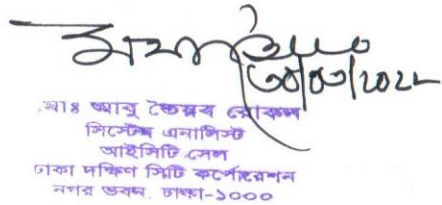 ৩০/০৩/২০২২
মোঃ আবু তৈয়ব রোকন
সিস্টেম এনালিস্ট
আইসিটি সেল
ঢাকা দক্ষিণ সিটি কর্পোরেশন
নগর ভবন, ঢাকা-১০০০